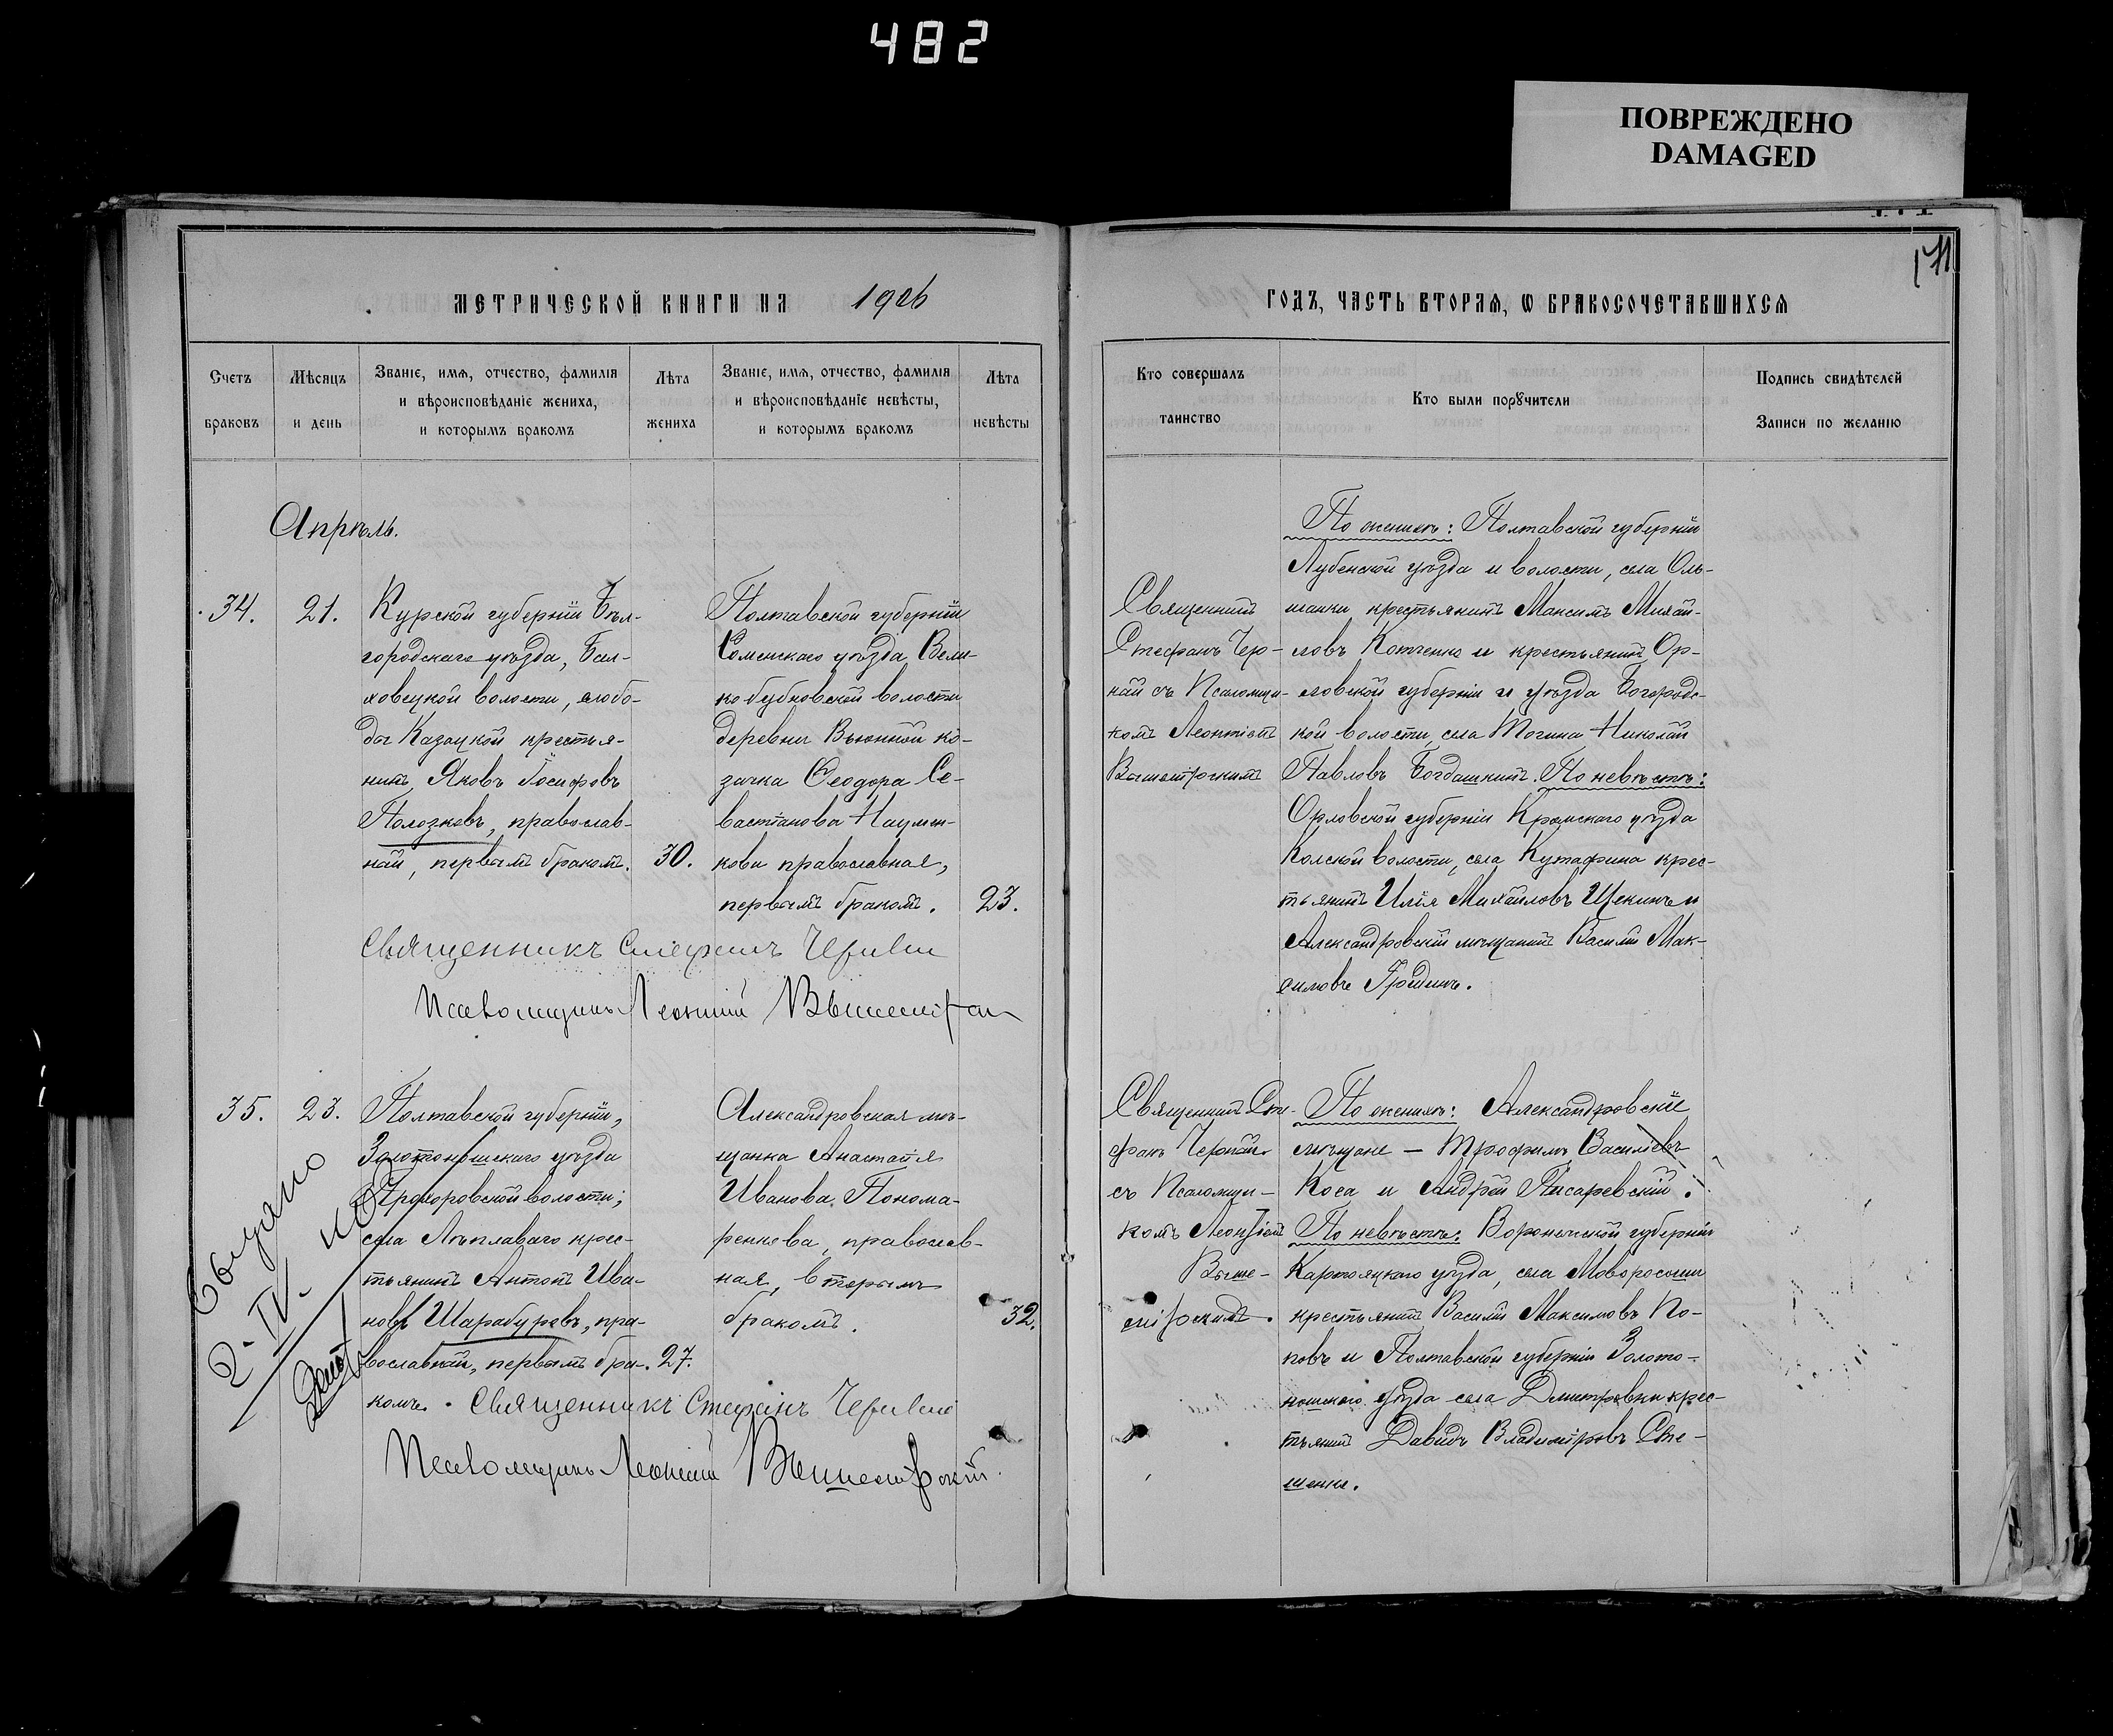 482
ПОВРЕЖДЕНО
DAMAGED
171
МЕТРИЧЕСКОЙ КНИГИ НА 1906
ГОДЪ, ЧАСТЬ ВТОРАЯ, Ѡ БРАКОСОЧЕТАВШИХСЯ
Счетъ браковъ
Мѣсяцъ и день
Званіе, имя, отчество, фамилія
и вѣроисповѣданіе жениха,
и которымъ бракомъ
Лѣта жениха
Званіе, имя, отчество, фамилія
и вѣроисповѣданіе невѣсты,
и которымъ бракомъ
Лѣта невѣсты
Кто совершалъ
таинство
Кто были порꙋчители
Подпись свидѣтелей
Записи по желанію
Апрѣль.
34.
21.
Курской губерніи Бѣл-
городскаго уѣзда, Бол-
ховецкой волости, слобо-
ды Казацкой крестья-
нинъ Яковъ Іосифовъ
Полозковъ, православ-
ный, первымъ бракомъ.
30.
Полтавской губерніи
Роменскаго уѣзда Вели-
кобубновской волости
деревни Вьюнной ко-
зачка Ѳеодора Се-
вастіанова Наумен-
кова православная,
первымъ бракомъ.
23.
Священникъ Стефанъ
Псаломщикъ Леонтій
Священникъ
Стефанъ Чер-
ный съ Псаломщи-
комъ Леонтіемъ
По женихѣ: Полтавской губерніи
Лубенской уѣзда и волости, села Оль-
шанки крестьянинъ Максимъ Михай-
ловъ Котченко и крестьянинъ Ор-
ловской губерніи и уѣзда Богородс-
кой волости, села Могина Николай
Павловъ Богдашкинъ. По невѣстѣ:
Орловской губерніи Кромскаго уѣзда
волости, села Кутафина крес-
тьянинъ Илія Михайловъ Щекинъ и
Александровскій мѣщанинъ Василій Мак-
симовъ Гродинъ.
35.
23.
Полтавской губерніи,
Золотоношскаго уѣзда
Прохоровской волости,
села Лѣплаваго крес-
тьянинъ Антонъ Ива-
новъ Шарабуровъ, пра-
вославный, первымъ бра-
комъ.
27.
Александровская мѣ-
щанка Анастасія
Иванова Понома-
ренкова, православ-
ная, вторымъ
бракомъ.
32.
Выдано
2. IV.
Священникъ Стефанъ
Псаломщикъ Леонтій
Священникъ Сте-
фанъ Черный
съ Псаломщи-
комъ Леонтіемъ
Выше-
По женихѣ: Александровскіе
мѣщане — Трофимъ Васильевъ
Коса и Андрей Писаревскій.
По невѣстѣ: Воронежской губерніи
уѣзда, села
крестьянинъ Василій Максимовъ По-
повъ и Полтавской губерніи Золото-
ношскаго уѣзда села Дмитровки крес-
тьянинъ Давидъ Владиміровъ Сте-
шенко.